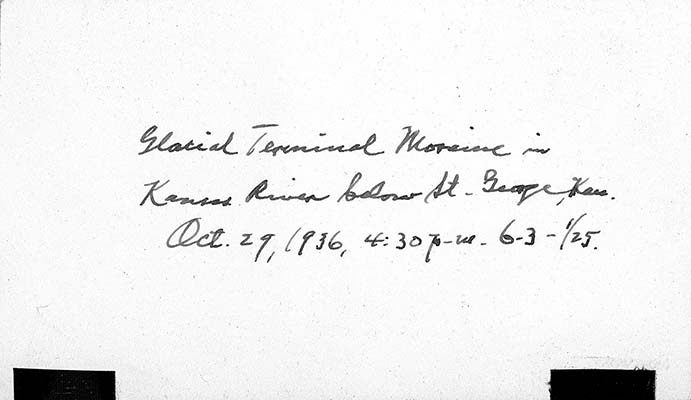 Glacial Terminal Moraine in
Kansas River below St. George, Kan.
Oct. 29, 1936, 4:30 p.m. 6-3-1/25.